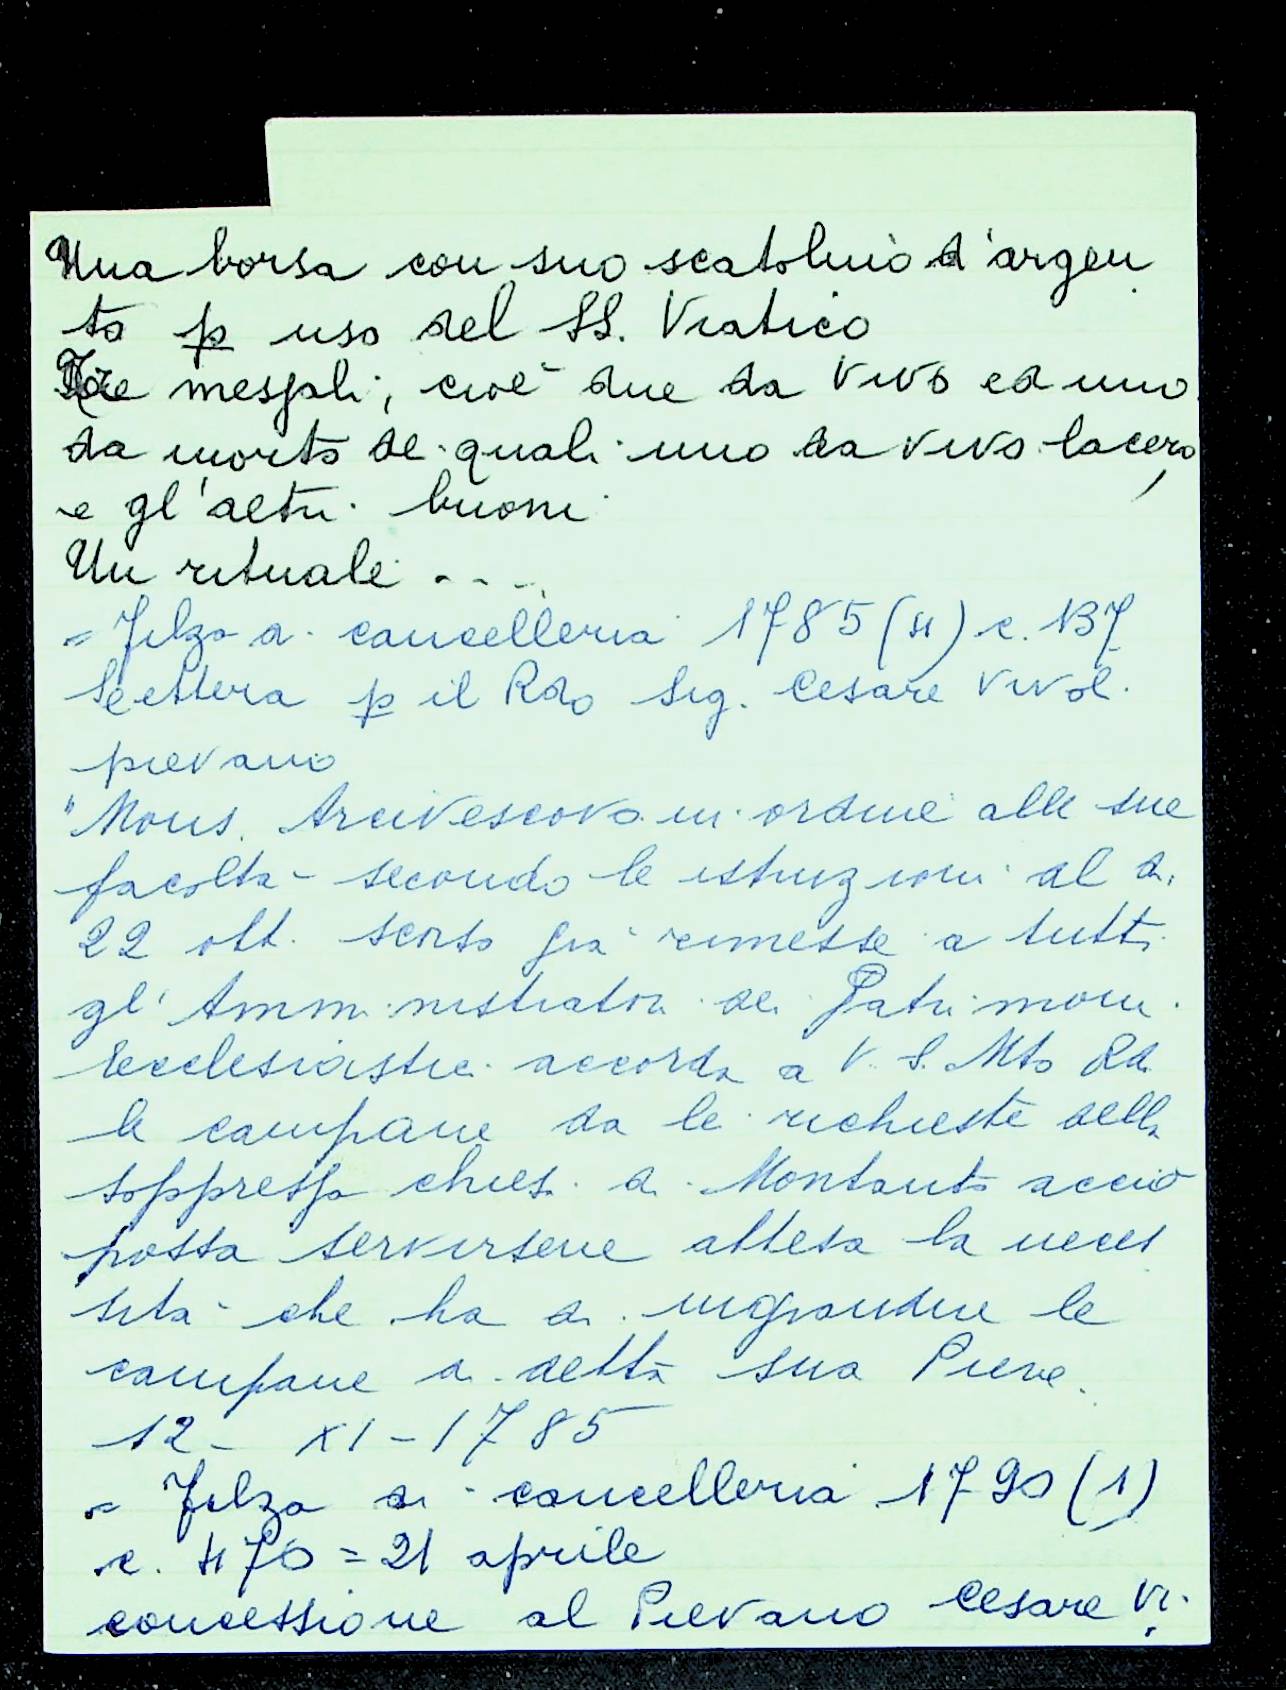 Una borsa con suo scatolino d'argen
to p uso del SS. Viatico
Tre messali, cioè due da vivo ed uno
da morto de quali uno da vivo lacero,
e gl'altri buoni
Un rituale ....
= Filza di cancelleria 1785 (4) c. 137
Lettera p il Rdo Sig. Cesare Vivol.
pievano
"Mons. Arcivescovo in ordine alle sue
facoltà secondo le istruzioni al di
22 ott. scorso già rimesse a tutti
gl'Amministratori dei Patrimoni
Ecclesiastici accorda a V. S. Mto Rd.
le campane da le richieste della
soppressa chies. di Montauto acciò
possa servirsene attesa la neces
sità che ha di ingrandire le
campane di detta sua Pieve.
12 - XI - 1785
= Filza di cancelleria 1790 (1)
c. 470 = 21 aprile
concessione al Pievano Cesare Vi.